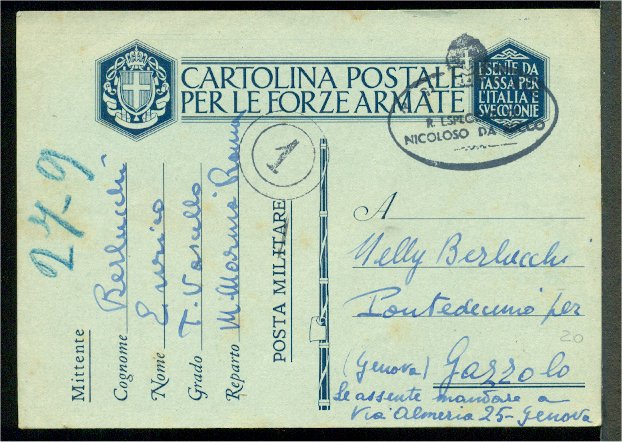 CARTOLINA POSTALE
PER LE FORZE ARMATE
ESENTE DA
TASSA PER
L'ITALIA E
SVE COLONIE
R. ESPLORATORE
NICOLOSO DA RECCO
1
27-9
Mittente
Cognome Berlucchi
Nome Enrico
Grado T. Vascello
Reparto M. Marina Roma
POSTA MILITARE
A
Nelly Berlucchi
Pontedecimo per
20
(Genova) Gazzolo
Se assente mandare a
Via Almeria 25 - Genova